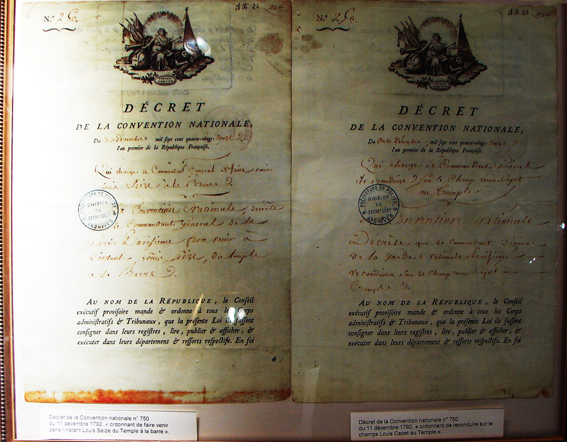 N.º 750
DÉCRET
DE LA CONVENTION NATIONALE,
Du mil sept cent quatre-vingt-
l'an premier de la République Françoise.
Qui charge le Commandant Général de faire
Louis Seize à la Barre
La Convention Nationale, décrète
le Commandant Général de la
Garde Parisienne fera venir à
l'instant, Louis Seize, du Temple
à la Barre
AU NOM DE LA RÉPUBLIQUE, le Conseil
exécutif provisoire mande & ordonne à tous les Corps
administratifs & Tribunaux, que la présente Loi ils fassent
consigner dans leurs registres, lire, publier & afficher, &
exécuter dans leurs départemens & ressorts respectifs. En foi
Décret de la Convention nationale n° 750
du 11 décembre 1792, « ordonnant de faire venir
dans l'instant Louis Seize du Temple à la barre ».
DÉCRET
DE LA CONVENTION NATIONALE,
Du Onze Décembre mil sept cent quatre-vingt-
l'an premier de la République Françoise.
Qui charge le Commandant Général
de reconduire sur le Champ Louis Capet
au Temple
La Convention Nationale
Décrète que le Commandant Général
de la Garde Nationale Parisienne
reconduira sur le champ Louis Capet au
Temple
AU NOM DE LA RÉPUBLIQUE, le Conseil
exécutif provisoire mande & ordonne à tous les Corps
administratifs & Tribunaux, que la présente Loi ils fassent
consigner dans leurs registres, lire, publier & afficher, &
exécuter dans leurs départemens & ressorts respectifs. En foi
Décret de la Convention nationale n° 750
du 11 décembre 1792, « ordonnant de reconduire sur le
champs Louis Capet au Temple ».